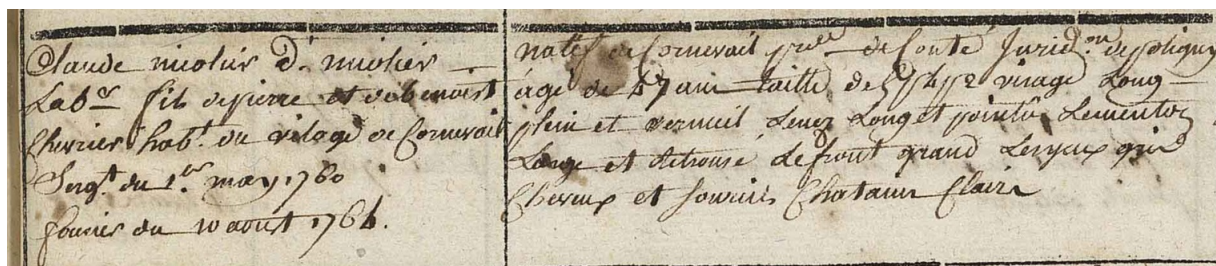 Claude micolier D. micolier
Labr. fils de pierre et de benoist
Chevrier habt. du vilage de Cornevait
Sergt. du 1er may 1760
fourier du 10 aoust 1764.
natif de Cornevait de Conté Jurid.on de poligny
agé de 47 ans taille de 5 p 4 p 2 visage Long
plein et vermeil Lenez Long et pointû Lementon
Large et Lefront grand Lesyeux gris
Cheveux et sourcils Chatains Clairs